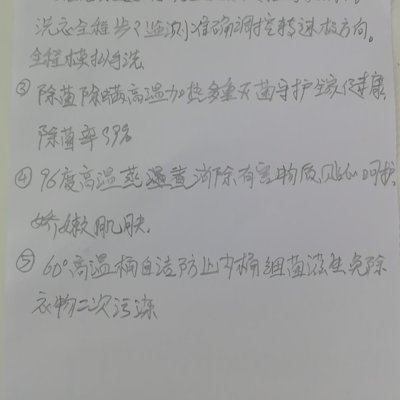 洗衣全程步步监测准确调控转速极方向。
全程模拟手洗
③ 除菌除螨高温加热多重灭菌守护全家健康
除菌率99%
④ 96度高温蒸温煮消除有害物质贴心呵护
娇嫩肌肤.
⑤ 60°高温桶自洁防止内桶细菌滋生免除
衣物二次污染